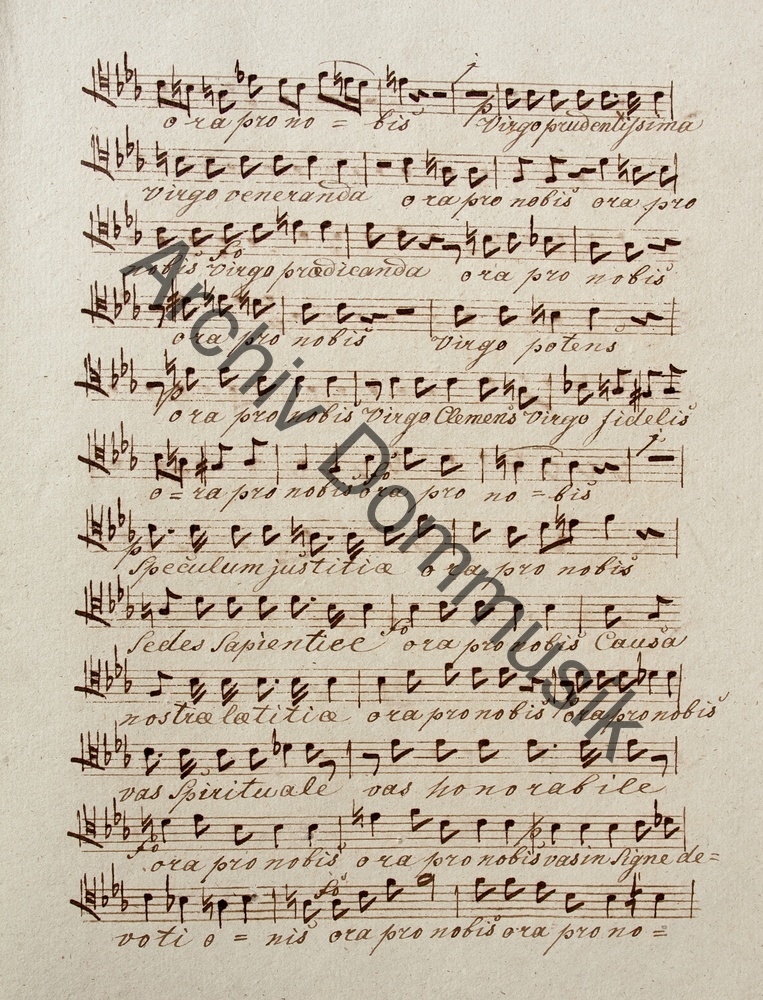 o ra pro no = bis p Virgo prudentissima
Virgo veneranda o ra pro nobis ora pro
nobis fo Virgo prædicanda ora pro nobis
o ra pro nobis Virgo potens
p ora pro nobis Virgo Clemens Virgo fidelis
o = ra pro nobis fo ora pro no = bis
p Speculum justitiæ ora pro nobis
Sedes Sapientiæ fo ora pro nobis Causa
nostræ lætitiæ ora pro nobis ora pro nobis
vas Spirituale vas honorabile
fo ora pro nobis ora pro nobis p vas in Signe de=
voti o = nis fo ora pro nobis ora pro no =
Archiv Dommusik